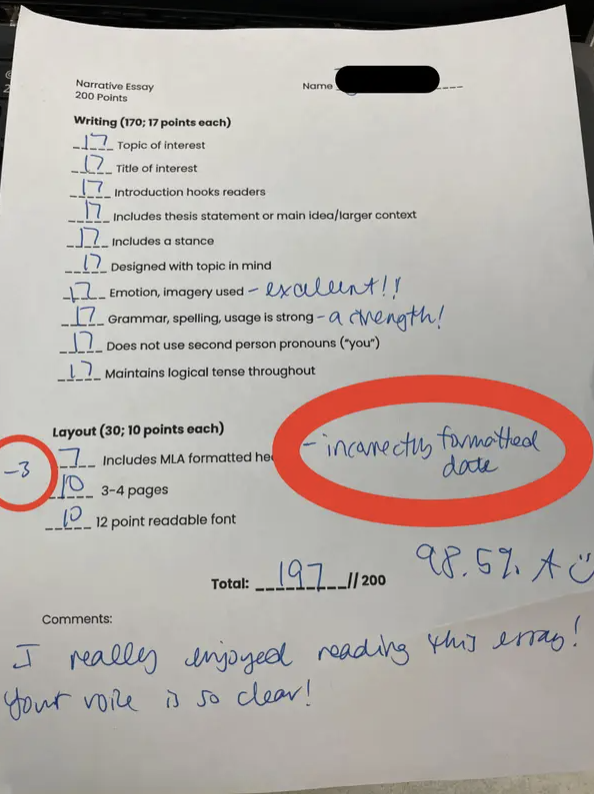 Narrative Essay
200 Points
Name
Writing (170; 17 points each)
17 Topic of interest
17 Title of interest
17 Introduction hooks readers
17 Includes thesis statement or main idea/larger context
17 Includes a stance
17 Designed with topic in mind
17 Emotion, imagery used - excellent!!
17 Grammar, spelling, usage is strong - a strength!
17 Does not use second person pronouns ("you")
17 Maintains logical tense throughout
Layout (30; 10 points each)
-3 7 Includes MLA formatted he - incorrectly formatted
date
10 3-4 pages
10 12 point readable font
98.5% A
Total: 197 // 200
Comments:
I really enjoyed reading this essay!
Your voice is so clear!